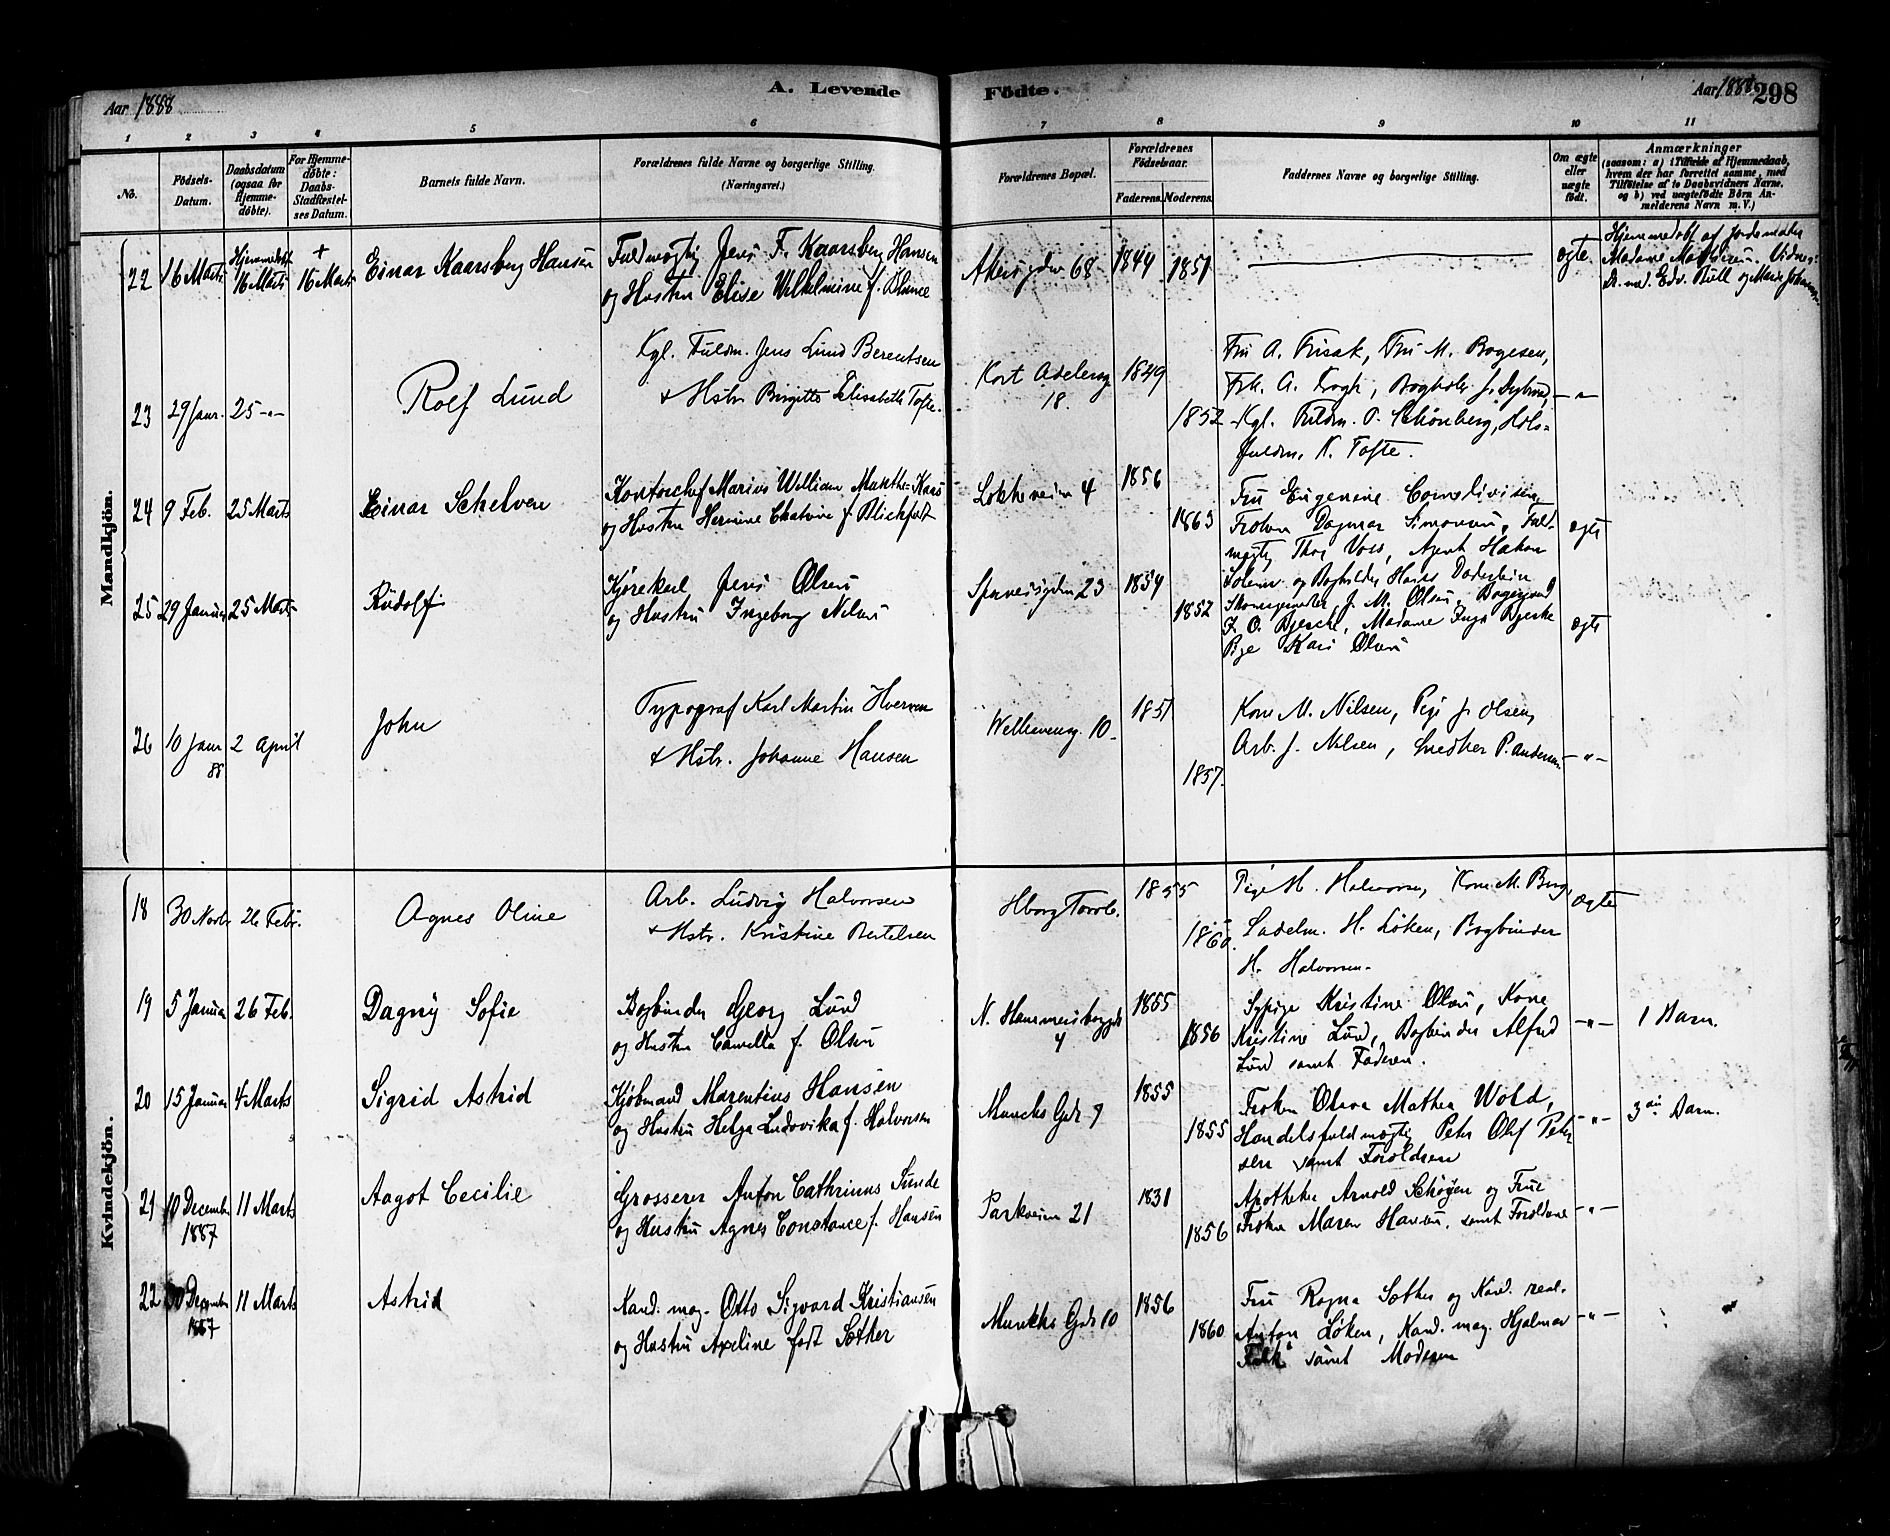 Aar 1888
A. Levende
Fødte.
Aar 1888
298
1 2 3 4 5 6 7 8 9 10 11
No.
Fødsels-Datum.
Daabsdatum (ogsaa for Hjemme-døbte).
For Hjemme-døbte: Daabs-Stadfæstel-ses Datum.
Barnets fulde Navn.
Forældrenes fulde Navne og borgerlige Stilling. (Næringsvei.)
Forældrenes Bopæl.
Forældrenes Fødselsaar.
Faderens. Moderens.
Faddernes Navne og borgerlige Stilling.
Om ægte eller uægte født.
Anmærkninger
(saasom: a) i Tilfælde af Hjemmedaab, hvem der har forrettet samme, med Tilføielse af to Daabsvidners Navne, og b) ved uægtefødte Børn Anmelderens Navn m. V.)
Mandkjön.
22 16 Marts Hjemmedøbt 16 Marts + 16 Marts Einar Kaarsberg Hansen
Fuldmægtig Jens F. Kaarsberg Hansen
og Hustru Elise Wilhelmine f.
Akersgden 68 1844 1851 ægte
Hjemmedøbt af Jordemoder
Madame Vidner:
Dr. med. Edv. Bull og Marie
23 29 Janr. 25 -"- Rolf Lund
Kgl. Fuldm. Jens Lund Berentsen
+ Hstr. Birgitte Elisabeth Tofte.
Kort Adelersg 18. 1849 1852
Fru A. Frisak, Fru M. Bogesen,
Frk. A. Krogh, Bogholder J.
Kgl. Fuldm. P. Schönberg,
fuldm. K. Tofte.
-"-
24 9 Feb. 25 Marts Einar Schelven
Kontorchef Marius William Munthe-Kaas
og Hustru Hermine Chatrine f. Blichfeldt
Løkkeveien 4 1856 1863
Fru Eugenine
Frøken Dagmar Simonsen, Fuld-
mægtig Thor Voss, Agent Hakon
og Bogholder Hans
ægte
25 29 Januar 25 Marts Rudolf
Kjørekarl Jens Olsen
og Hustru Ingeborg Nilsen
Sporveisgden 23 1854 1852
J. M. Olsen,
Bjerche, Madame Inga Bjerke
Pige Kari Olsen
ægte
26 10 Janr 88 2 April John
Typograf Karl Martin Hversen
+ Hstr. Johanne Hansen
Welhavensg. 10. 1851 1857.
Kone M. Nilsen, Pige J. Olsen,
Arb. J. Nilsen, Snedker P. Andersen
-"-
Kvindekjön.
18 30 Novbr. 26 Febr. Agnes Oline
Arb. Ludvig Halvorsen
+ Hstr. Kristine Bertelsen
Hborg Torvb. 1855 1860.
Pige H. Halvorsen, Kone M. Berg,
Sadelm. H. Løken, Bogbinder
H. Halvorsen.
ægte
19 5 Januar 26 Feb. Dagny Sofie
Bogbinder Georg Lund
og Hustru Camilla f. Olsen
N. Hammersborggd 4 1855 1856
Sypige Kristine Olsen, Kone
Kristine Lund, Bogbinder Alfred
Lund samt Faderen.
-"- 1 Barn.
20 15 Januar 4 Marts Sigrid Astrid
Kjøbmand Marentius Hansen
og Hustru Helga Ludovika f. Halvorsen
Munchs Gde 7 1855 1855
Frøken Olava Mathea Wold,
Handelsfuldmægtig Peter Olaf Peter
sen samt Forældrene
-"- 3 Barn.
21 10 December 1887 11 Marts Aagot Cecilie
Grosserer Anton Cathrinus Sunde
og Hustru Agnes Constance f. Hansen
Parkveien 21 1831 1856
Apotheker Arnold Schøyen og Frue
Frøken Maren Hansen, samt Forældrene
-"-
22 30 December 1887 11 Marts Astrid
Kand. mag. Otto Sigvard Kristiansen
og Hustru Axeline født Sæther
Munchs Gde 10 1856 1860
Fru Ragna Sæther og Kand. real.
Anton Løken, Kand. mag. Hjalmar
Falk samt Moderen
-"-